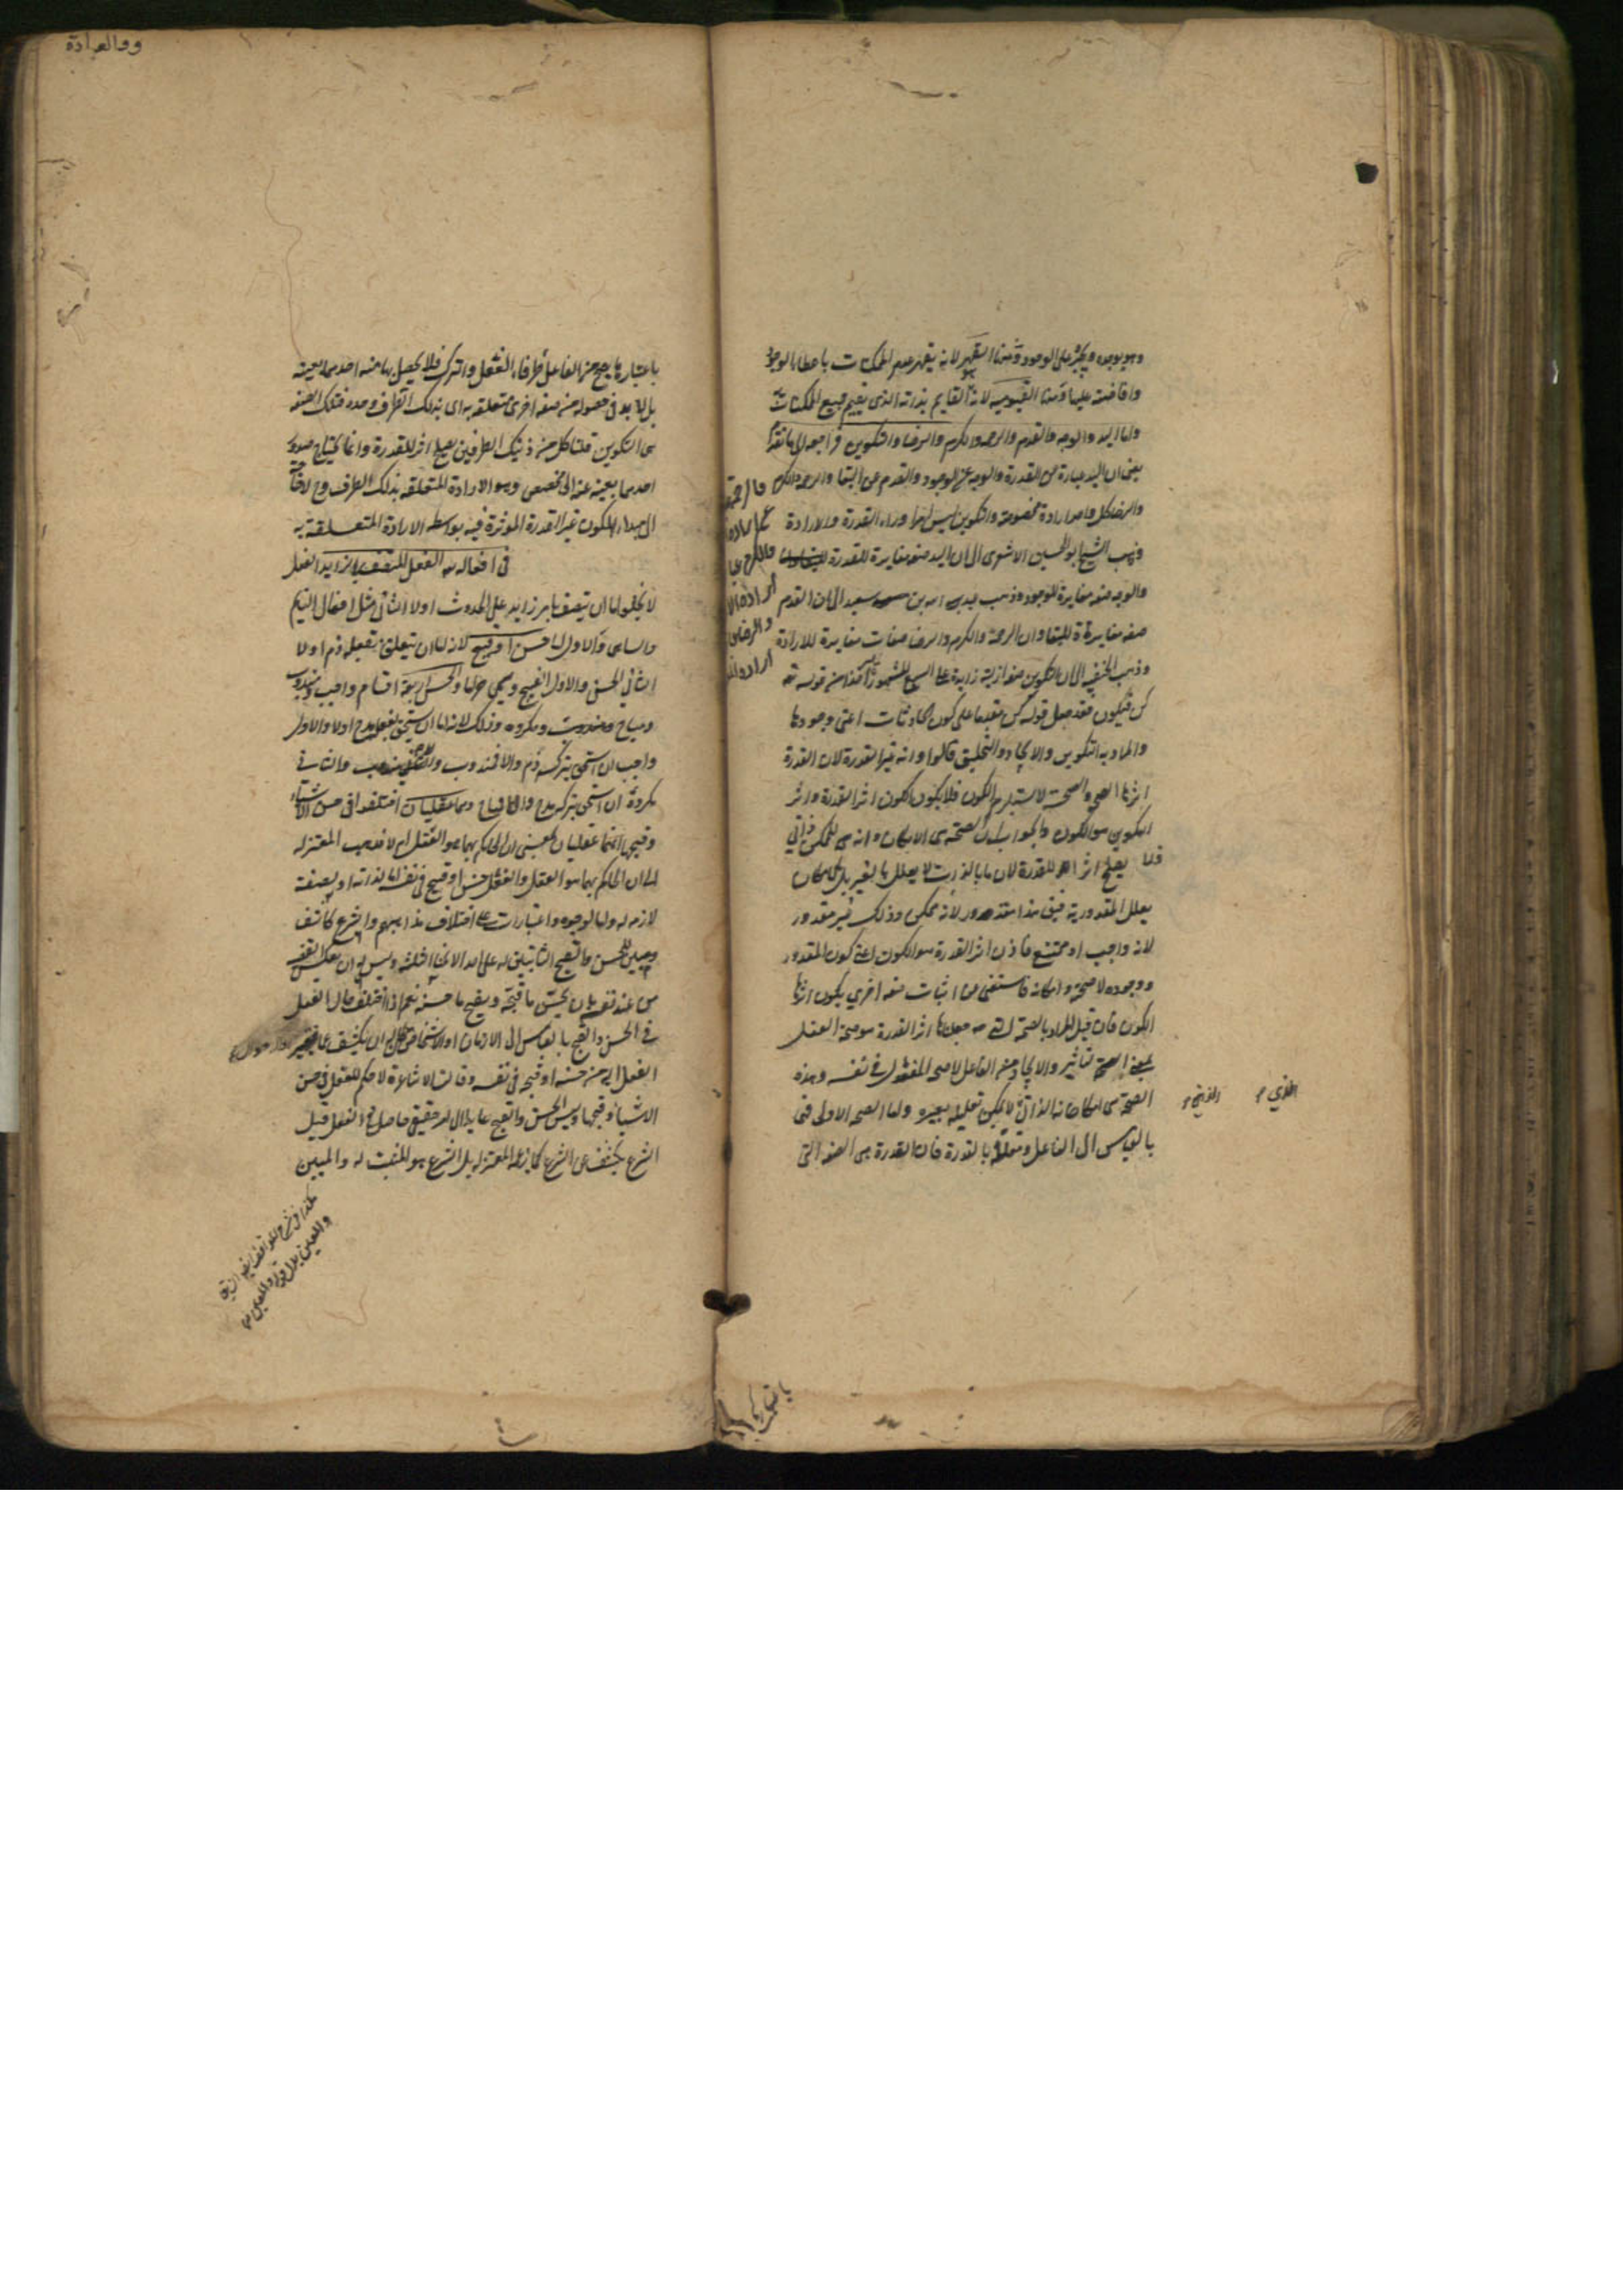 وهو يوجده ويجبره على الوجود ومنها القهر لانه يقهر عدم الممكنات باعطاء الوجود
وافاضته عليها ومنها القيومية لانه هو القايم بذاته الذى يقيم جميع الممكنات
واما اليد والوجه والقدم والرحمة والكرم والرضا والتكوين فراجعة الى ما تقدم
يعنى ان اليد عبارة عن القدرة والوجه عن الوجود والقدم عن البقا والرحمة والكرم
والرضا كل واحد ارادة مخصوصة والتكوين ليس امرا وراء القدرة والارادة
وذهب الشيخ ابو الحسين الاشعرى الى ان اليد صفة مغايرة للقدرة
والوجه صفة مغايرة للوجود وذهب عبد الله بن سعيد الى ان القدم
صفة مغايرة للبقا وان الرحمة والكرم والرضا صفات مغايرة للارادة
وذهب الحنفية الى ان التكوين صفة ازلية زايدة على السبع المشهورة اخذا من قوله تع
كن فيكون فقد جعل قوله كن متقدما على كون الحادثات اعنى وجودها
والمراد به التكوين والايجاد والتخليق قالوا وانه غير القدرة لان القدرة
اثرها الصحة والصحة لا تستلزم الكون فلا يكون الكون اثر القدرة واثر
التكوين هو الكون والجواب ان الصحة هى الامكان وانه للممكن ذاتى
فلا يصلح اثرا للقدرة لان ما بالذات لا يعلل بالغير بل بالامكان
يعلل المقدورية فيق هذا مقدور لانه ممكن وذلك غير مقدور
لانه واجب او ممتنع فاذن اثر القدرة هو الكون اعنى كون المقدور
ووجوده لا صحته وامكانه فاستغنى عن اثبات صفة اخرى يكون اثرها
الكون فان قيل المراد بالصحة التى جعلناها اثر القدرة هو صحة الفعل
بمعنى التاثير والايجاد من الفاعل لا صحة المفعول فى نفسه وهذه
الصحة هى امكانه الذاتى لا يمكن تعليله بغيره واما الصحة الاولى فهى
بالقياس الى الفاعل ومعللة بالقدرة فان القدرة هى الصفة التى
باعتبارها يصح من الفاعل طرفا الفعل والترك فلا يحصل بها منه احدهما بعينه
بل لا بد فى حصوله من صفة اخرى متعلقة به اى بذلك الطرف وحده فتلك الصفة
هى التكوين قلنا كل من ذينك الطرفين يصلح اثرا للقدرة وانما يحتاج صدور
احدهما بعينه عنه الى مخصص وهو الارادة المتعلقة بذلك الطرف وح لا حاجة
الى مبداء للكون غير القدرة الموثرة فيه بواسطة الارادة المتعلقة به
فى افعاله الفعل المتصف بالزايد الفعل
لا يخلو اما ان يتصف بامر زايد على الحدوث اولا الثانى مثل افعال النايم
والساهى والاول اما حسن او قبيح لانه اما ان يتعلق بفعله ذم اولا
الثانى الحسن والاول القبيح ويسمى حراما والحسن اربعة اقسام واجب ومندوب
ومباح ومكروه وذلك لانه اما ان يستحق بفعله مدح اولا والاول
واجب ان استحق بتركه ذم والا فندوب والثانى
مكروه ان استحق بتركه مدح والا فمباح وهما عقليان اختلفوا فى حسن الاشياء
وقبحها انهما عقليان بمعنى ان الحاكم بهما هو العقل ام لا فذهب المعتزلة
الى ان الحاكم بهما هو العقل والفعل حسن او قبيح فى نفسه اما لذاته او لصفة
لازمة له واما لوجوه واعتبارات على اختلاف مذاهبهم والشرع كاشف
ومبين للحسن والقبح الثابتين له على احد الانحاء الثلثة وليس له ان يعكس القضية
من عند نفسه بان يحسن ما قبحه ويقبح ما حسنه نعم اذا اختلف حال الفعل
فى الحسن والقبح بالقياس الى الازمان او الاشخاص كان له ان يكشف عما تغير
الفعل اليه من حسنه او قبحه فى نفسه وقالت الاشاعرة لا حكم للعقل فى حسن
الاشياء وقبحها وليس الحسن والقبح عايدا الى امر حقيقى حاصل فى الفعل قبل
الشرع يكشف عنه الشرع كما زعمه المعتزلة بل الشرع هو المثبت له والمبين